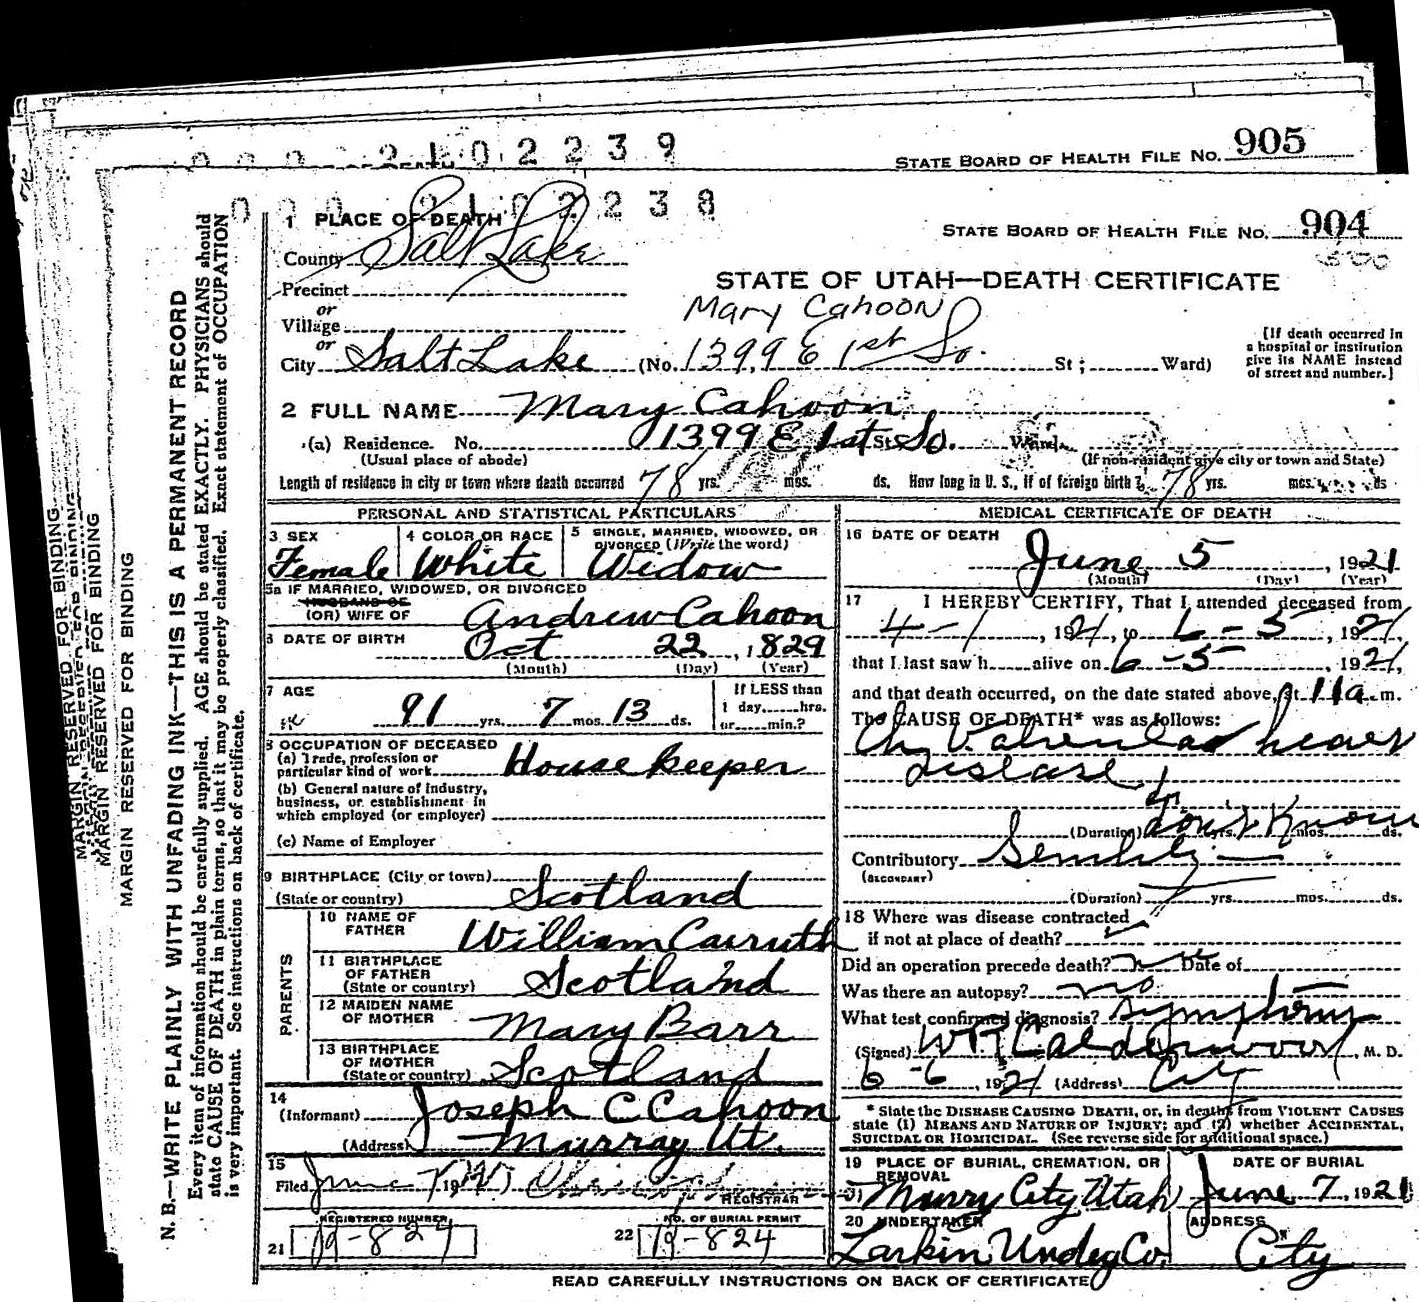 0 0 0 2 1 0 2 2 3 9
STATE BOARD OF HEALTH FILE No. 905
0 0 0 2 1 0 2 2 3 8
1 PLACE OF DEATH
STATE BOARD OF HEALTH FILE No. 904
County Salt Lake
STATE OF UTAH—DEATH CERTIFICATE
Precinct
or
Mary Cahoon
Village
or
City Salt Lake (No. 1399 E 1st So. St; Ward)
[If death occurred in
a hospital or institution
give its NAME instead
of street and number.]
2 FULL NAME Mary Cahoon
(a) Residence. No. 1399 E 1st St. So. Ward.
(Usual place of abode)
(If non-resident give city or town and State)
Length of residence in city or town where death occurred 78 yrs. mos. ds. How long in U. S., if of foreign birth? 78 yrs. mos. ds
PERSONAL AND STATISTICAL PARTICULARS
3 SEX
Female
4 COLOR OR RACE
White
5 SINGLE, MARRIED, WIDOWED, OR
DIVORCED (Write the word)
Widow
5a IF MARRIED, WIDOWED, OR DIVORCED
HUSBAND OF
(OR) WIFE OF Andrew Cahoon
6 DATE OF BIRTH Oct 22, 1829
(Month) (Day) (Year)
7 AGE
91 yrs. 7 mos. 13 ds.
If LESS than
1 day, hrs.
or min.?
8 OCCUPATION OF DECEASED
(a) Trade, profession or
particular kind of work House keeper
(b) General nature of industry,
business, or establishment in
which employed (or employer)
(c) Name of Employer
9 BIRTHPLACE (City or town)
(State or country) Scotland
PARENTS
10 NAME OF
FATHER William Carruth
11 BIRTHPLACE
OF FATHER
(State or country) Scotland
12 MAIDEN NAME
OF MOTHER Mary Barr
13 BIRTHPLACE
OF MOTHER
(State or country) Scotland
14
(Informant) Joseph C Cahoon
(Address) Murray Ut.
15
Filed June 7 19
REGISTRAR
REGISTERED NUMBER
21 12-824
NO. OF BURIAL PERMIT
22 12-824
MEDICAL CERTIFICATE OF DEATH
16 DATE OF DEATH
June 5, 1921
(Month) (Day) (Year)
17 I HEREBY CERTIFY, That I attended deceased from
4-1, 1921, to 6-5, 1921,
that I last saw h alive on 6-5, 1921,
and that death occurred, on the date stated above, at 11a.m.
The CAUSE OF DEATH* was as follows:
Ch. Valvular heart
disease
(Duration) don't Know yrs. mos. ds.
Contributory Senility
(SECONDARY)
(Duration) yrs. mos. ds.
18 Where was disease contracted
if not at place of death?
Did an operation precede death? no Date of
Was there an autopsy? no
What test confirmed diagnosis? Symptoms
(Signed) W R Calderwood, M. D.
6-6, 1921 (Address) City
* State the DISEASE CAUSING DEATH, or, in deaths from VIOLENT CAUSES
state (1) MEANS AND NATURE OF INJURY; and (2) whether ACCIDENTAL,
SUICIDAL OR HOMICIDAL. (See reverse side for additional space.)
19 PLACE OF BURIAL, CREMATION, OR
REMOVAL
Murry City Utah
DATE OF BURIAL
June 7, 1921
20 UNDERTAKER
Larkin Undeg Co.
ADDRESS
City
READ CAREFULLY INSTRUCTIONS ON BACK OF CERTIFICATE
MARGIN RESERVED FOR BINDING
MARGIN RESERVED FOR BINDING
MARGIN RESERVED FOR BINDING
N. B.—WRITE PLAINLY WITH UNFADING INK—THIS IS A PERMANENT RECORD
Every item of information should be carefully supplied. AGE should be stated EXACTLY. PHYSICIANS should
state CAUSE OF DEATH in plain terms, so that it may be properly classified. Exact statement of OCCUPATION
is very important. See instructions on back of certificate.